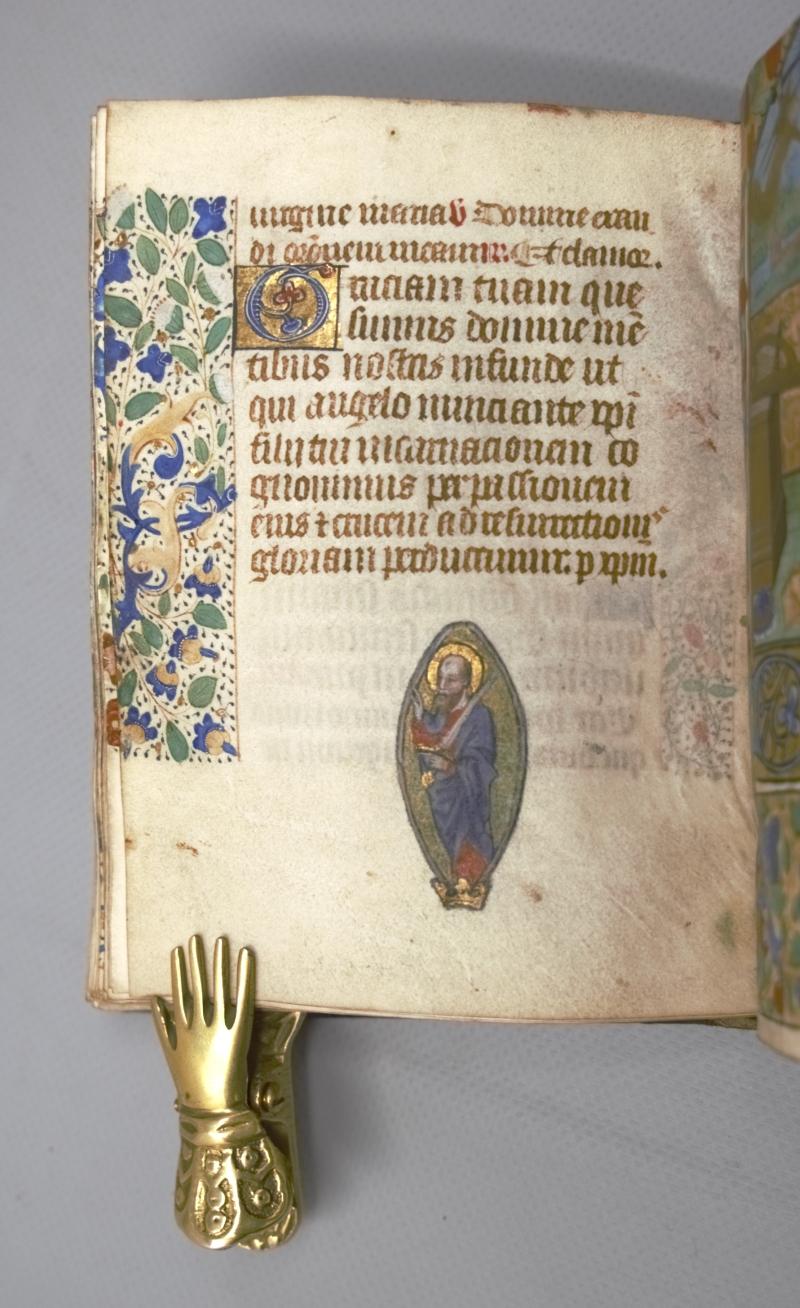 uirgine maria ℣ Domine exau
di orōnem meam ℟. Et clamor.
Graciam tuam que
sumus domine mē
tibus nostris infunde ut
qui angelo nunciante xpī
filij tui incarnacionem co
gnouimus per passionem
eius ⁊ crucem ad resurrectionis
gloriam perducamur. p xpm̄.